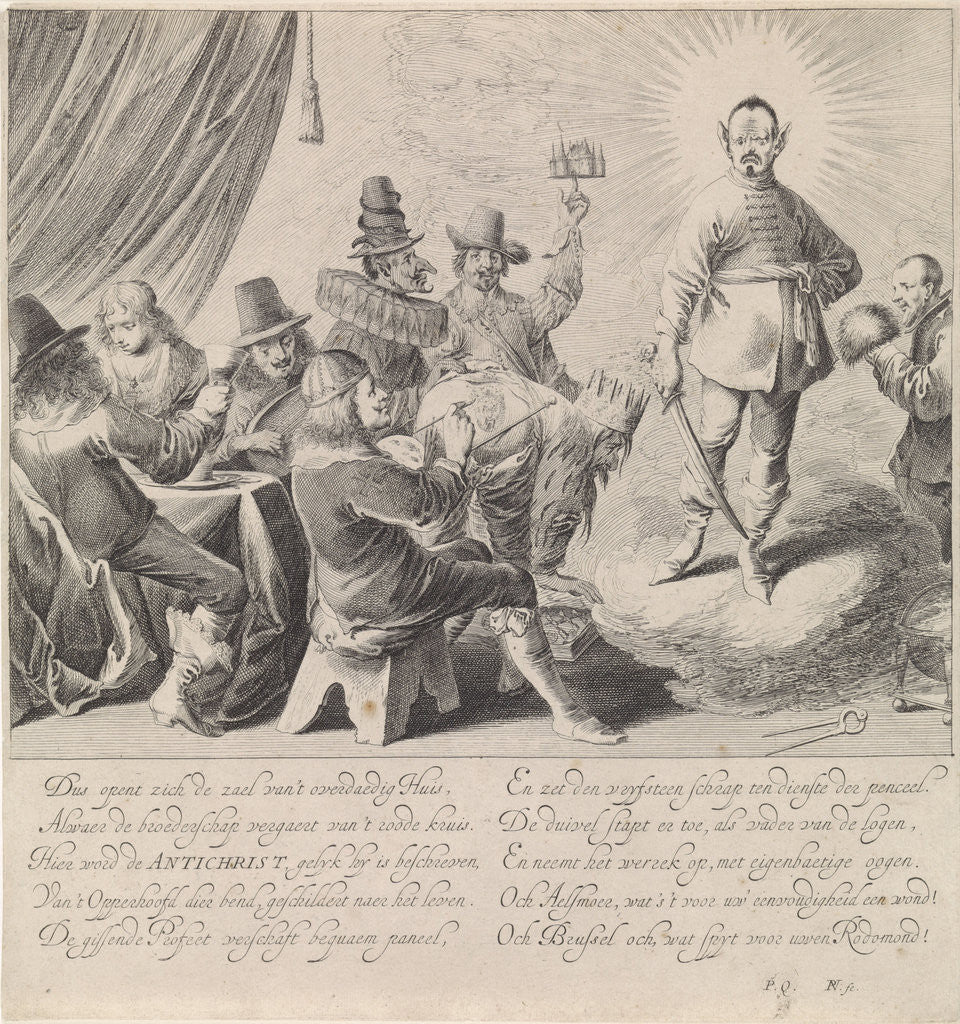 Dus opent zich de zael van't overdaedig Huis,
Alwaer de broederschap vergaert van't roode kruis.
Hier word de ANTICHRIST, gelyk hy is beschreven,
Van't Opperhoofd dier bend, geschildert naer het leven.
De gissende Profeet verschaft bequaem paneel,
En zet den vryfsteen schrap ten dienste der penceel.
De duivel stapt er toe, als vader van de logen,
En neemt het werrek op, met eigenbaetige oogen.
Och Aelsmeer, wat's't voor uw eenvoudigheid een wond!
Och Brussel och, wat spyt voor uwen Rodomond!
P. Q. RN. fe.